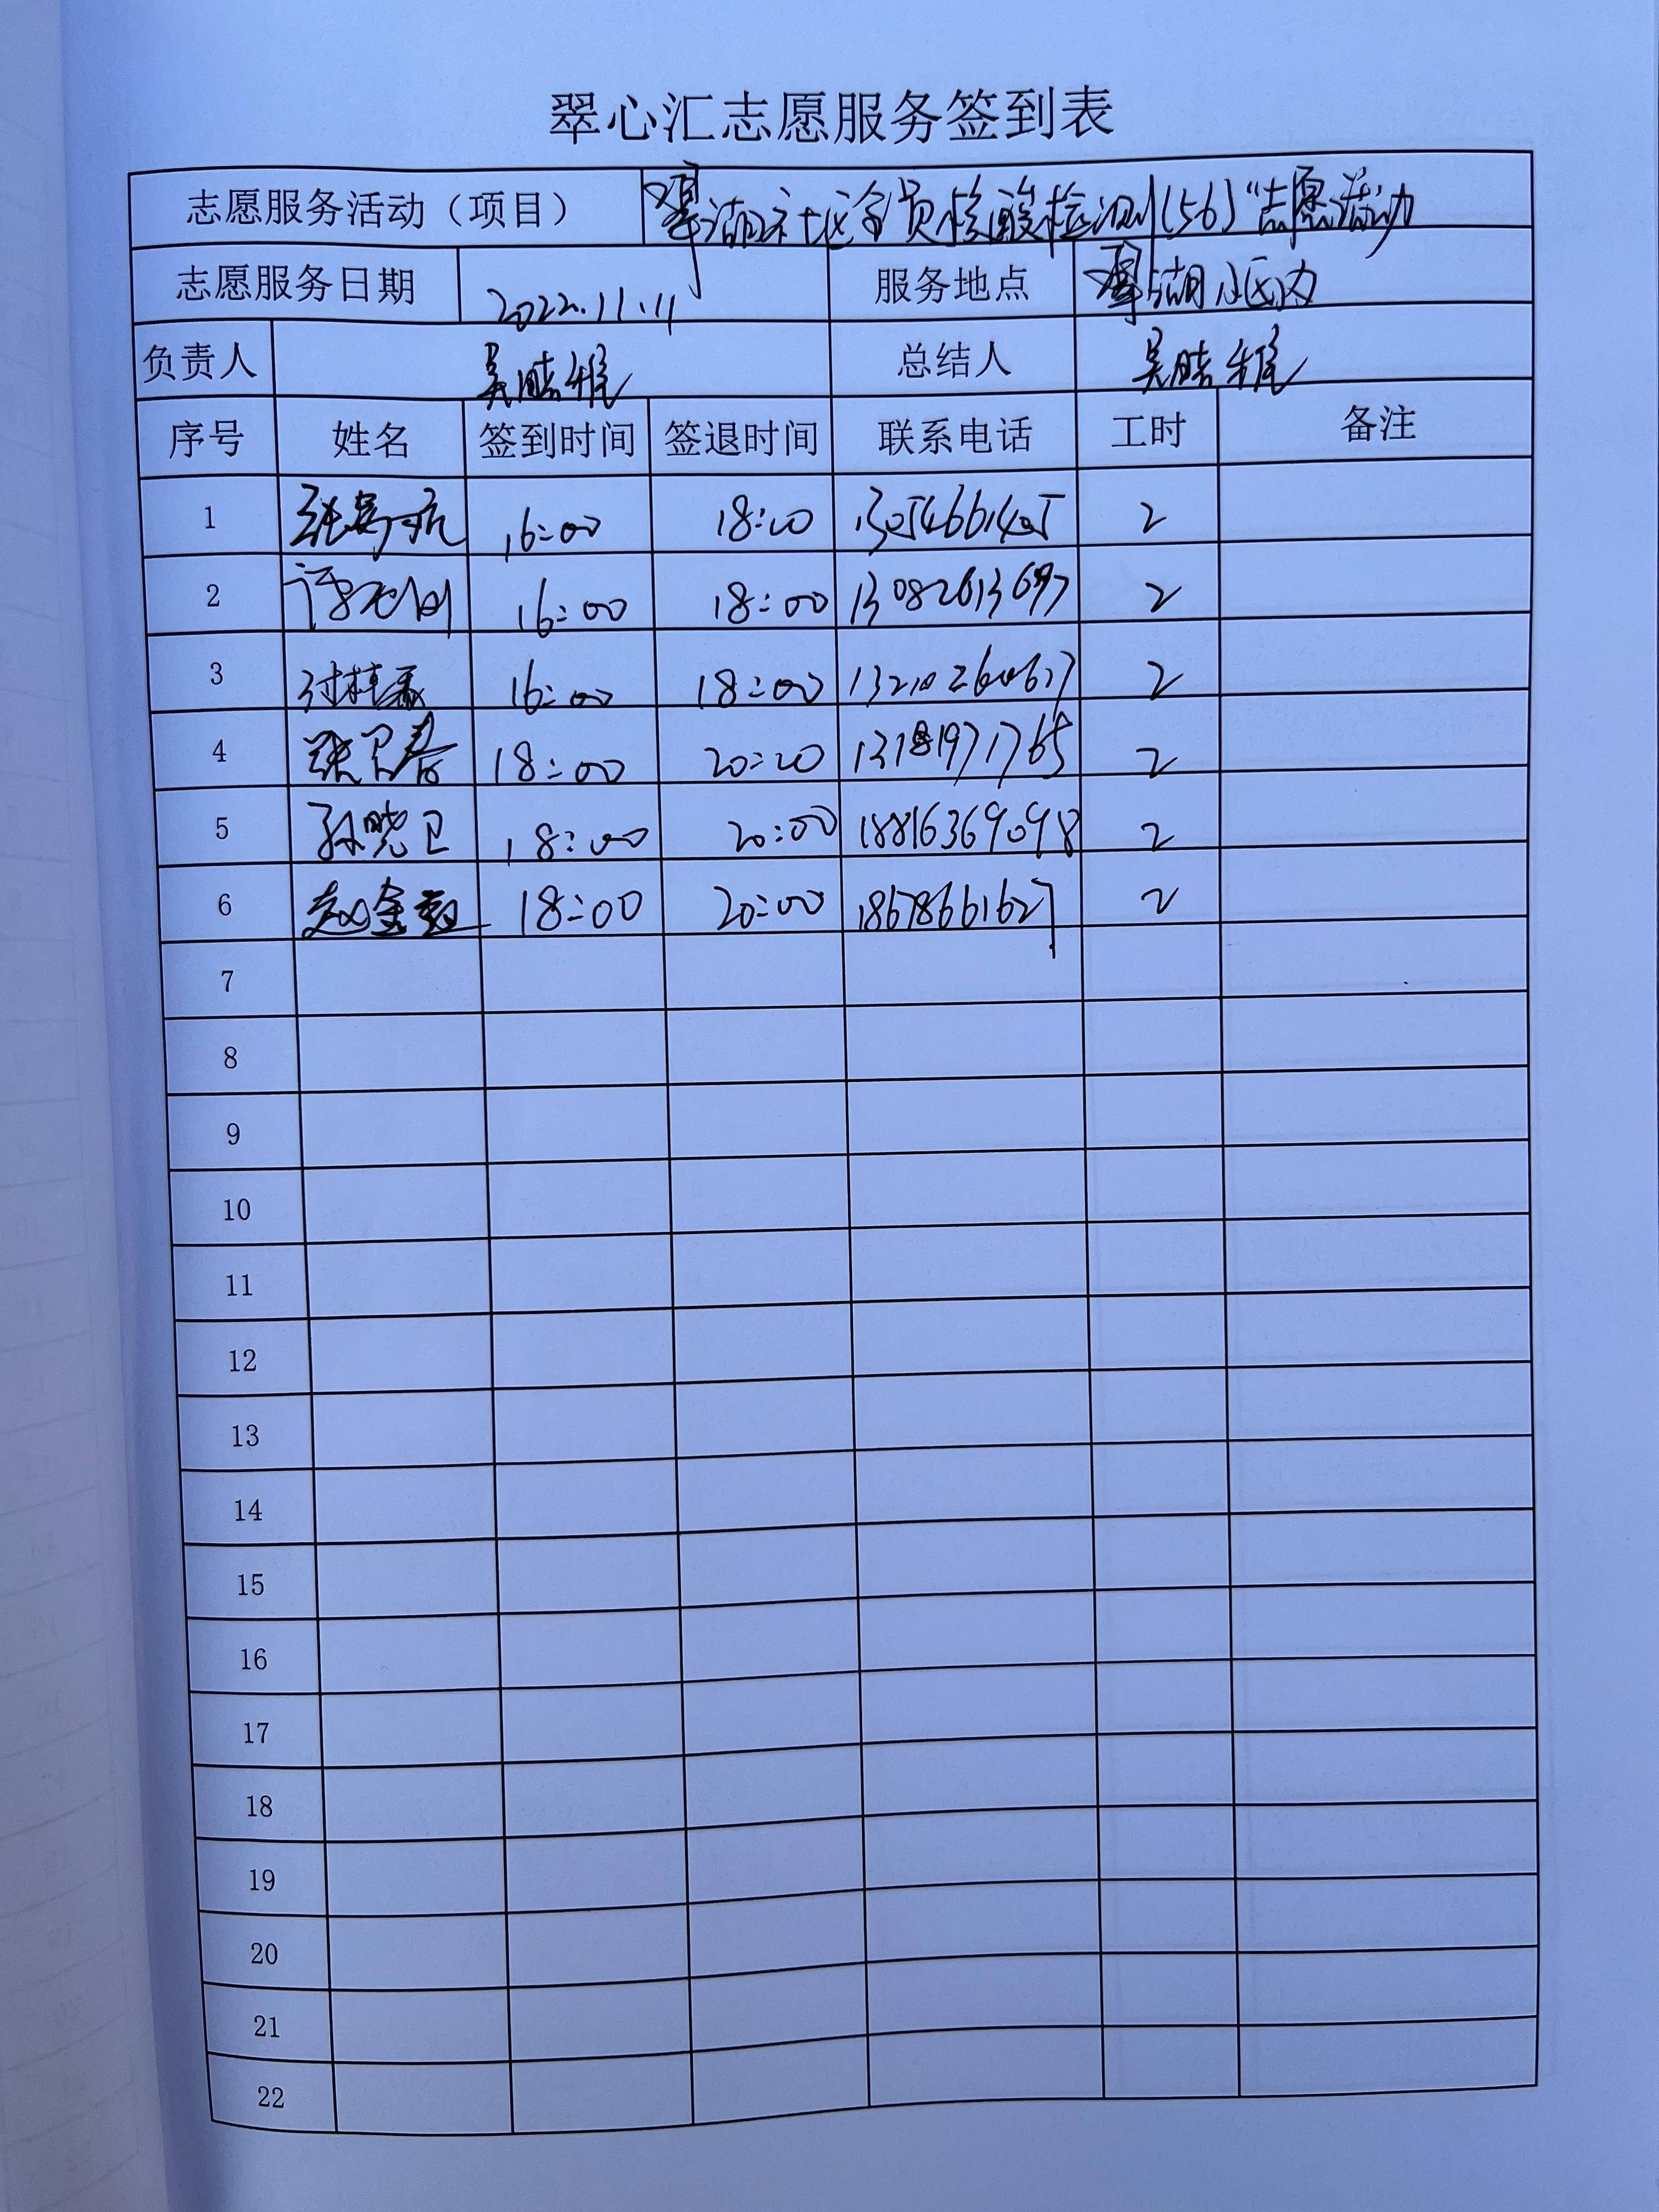 翠心汇志愿服务签到表
志愿服务活动（项目） 翠湖社区全员核酸检测(56)"志愿活动
志愿服务日期 2022.11.11 服务地点 翠湖小区内
负责人 吴晓维 总结人 吴晓维
序号 姓名 签到时间 签退时间 联系电话 工时 备注
1 16:00 18:00 13054661405 2
2 16:00 18:00 13082613697 2
3 16:00 18:00 2
4 张卫春 18:00 20:20 13181971765 2
5 孙晓卫 18:00 20:00 18816369098 2
6 18:00 20:00 18678661627 2
7
8
9
10
11
12
13
14
15
16
17
18
19
20
21
22